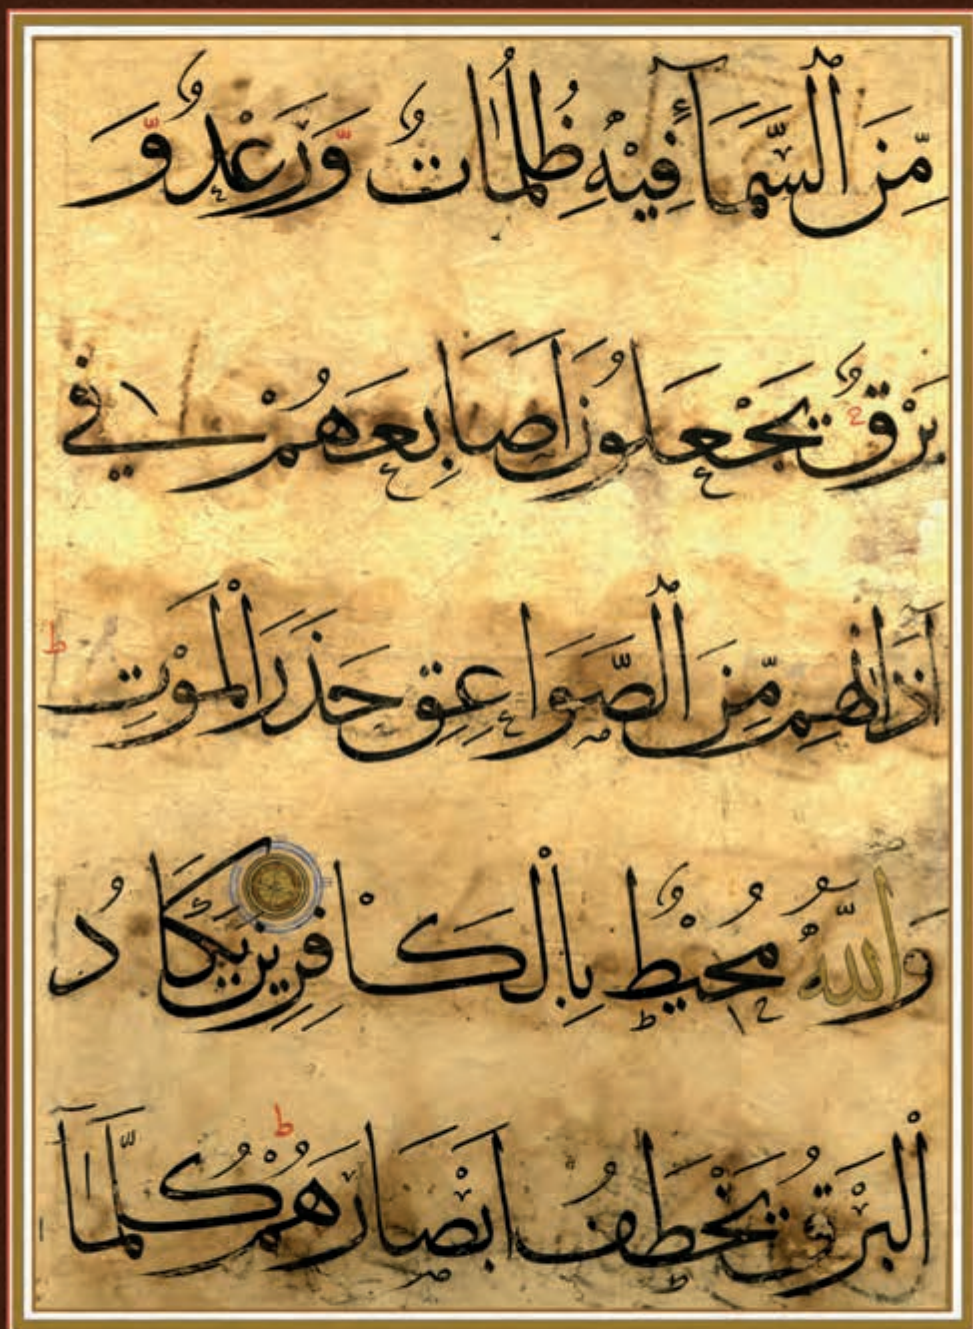 مِّنَ ٱلسَّمَآءِ فِيْهِ ظُلُمَاتٌ وَّرَعْدٌ وَّ
بَرْقٌ يَجْعَلُوْنَ اَصَابِعَهُمْ فِي
اٰذَانِهِمْ مِّنَ ٱلصَّوَاعِقِ حَذَرَ الْمَوْتِ ط
وَاللّٰهُ مُحِيْطٌ بِالْكَافِرِيْنَ يَكَادُ
الْبَرْقُ يَخْطَفُ اَبْصَارَهُمْ ط كُلَّمَآ